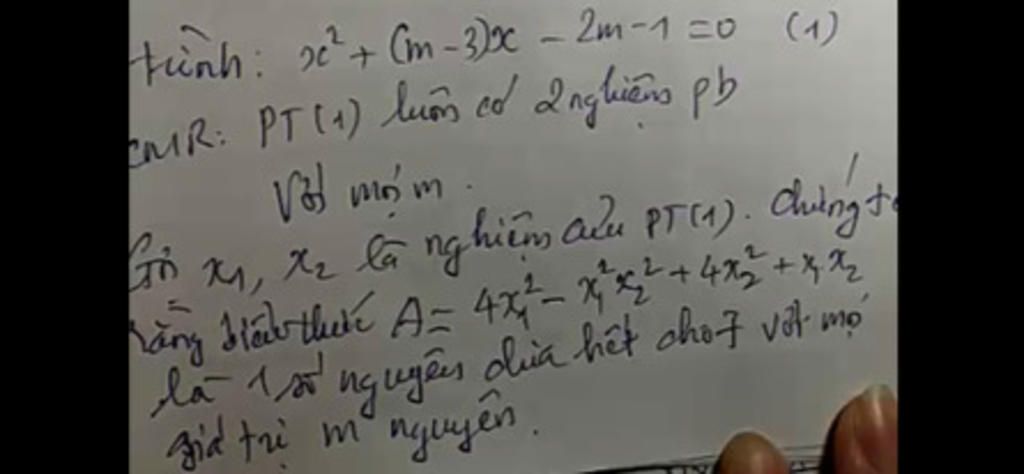 trình: x² + (m - 3)x - 2m - 1 = 0 (1)
CMR: PT(1) luôn có 2 nghiệm pb
Với mọi m.
Gọi x₁, x₂ là nghiệm của PT(1). Chứng tỏ
rằng biểu thức A = 4x₁² - x₁²x₂² + 4x₂² + x₁x₂
là 1 số nguyên chia hết cho 7 với mọ
giá trị m nguyên.